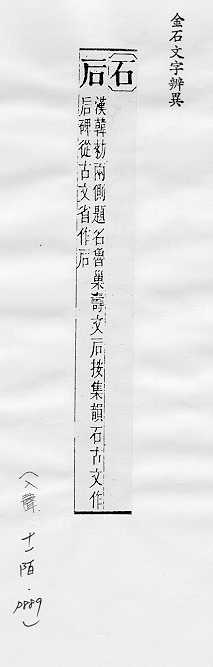 金石文字辨異
石
后
漢韓勑兩側題名魯巢壽文后按集韻石古文作
后碑從古文省作后
（入聲．十一陌．p889）